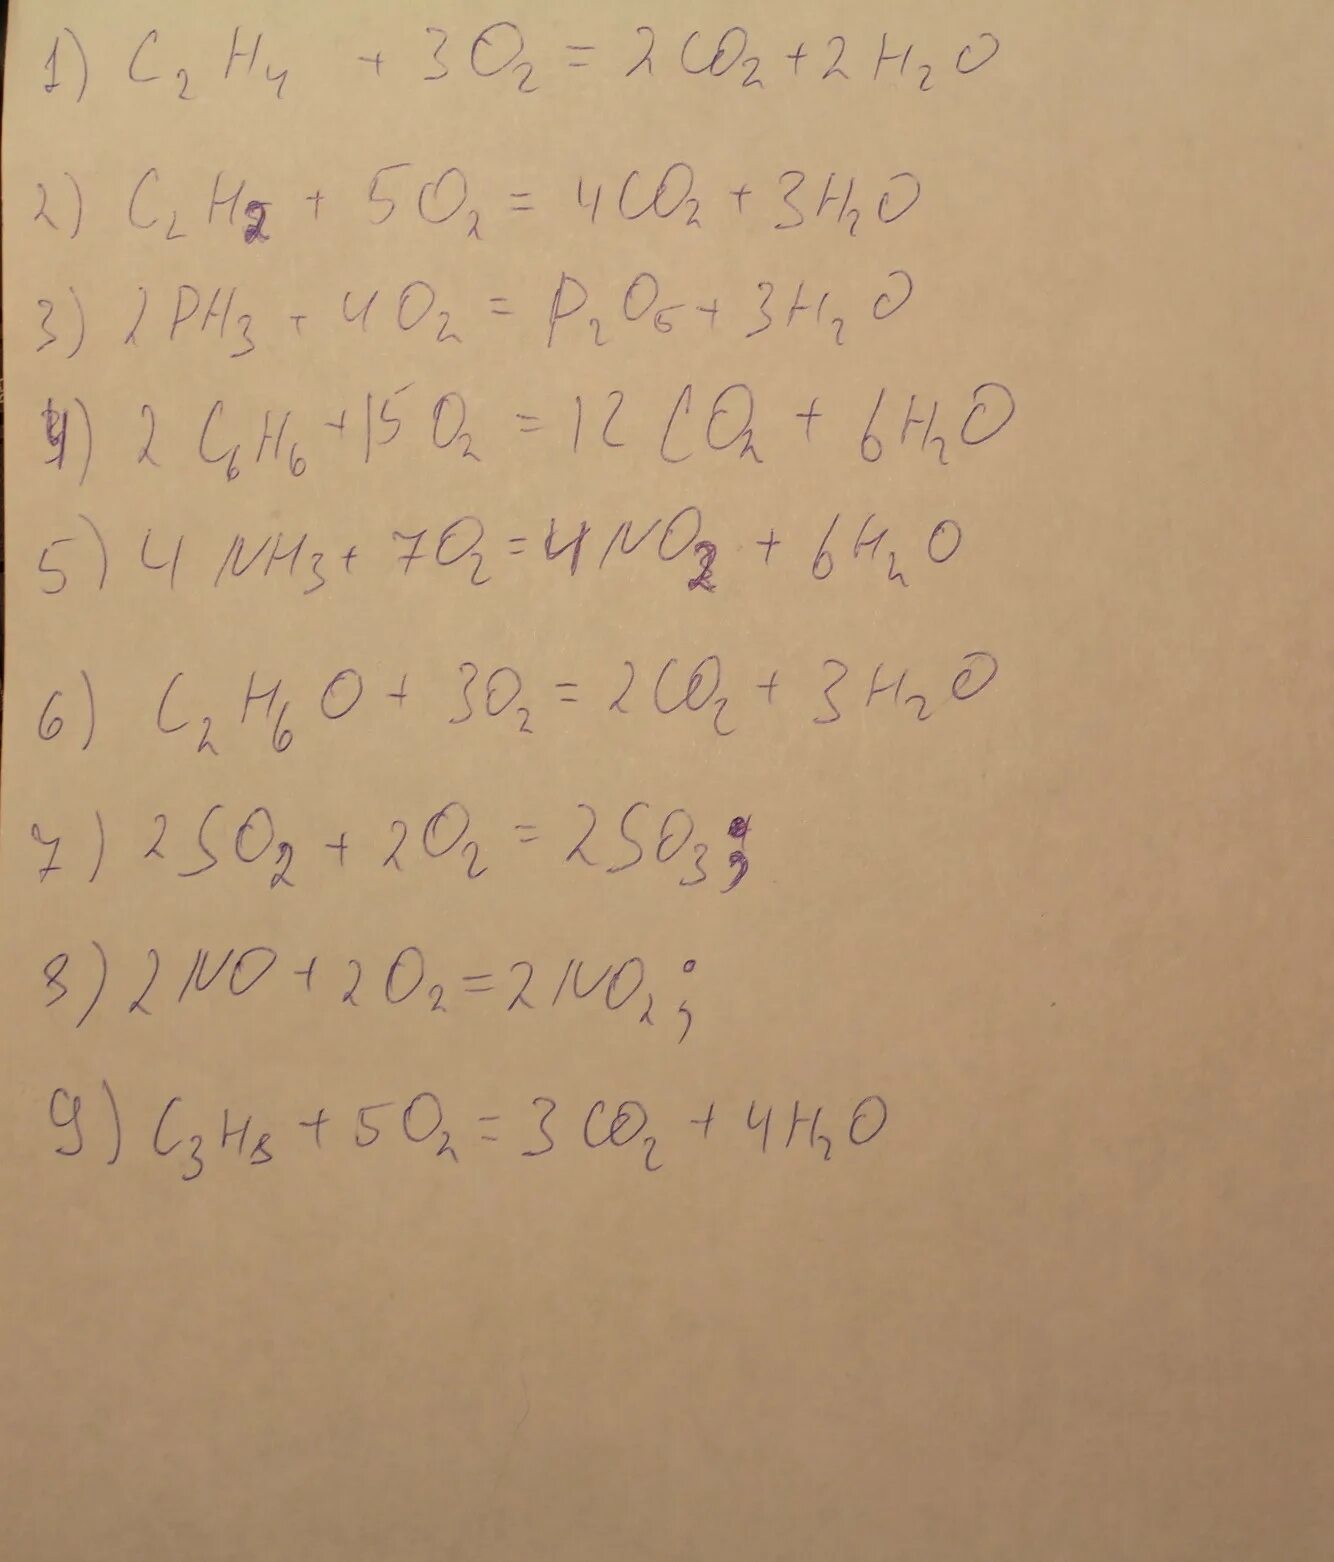 1) C₂H₄ + 3O₂ = 2CO₂ + 2H₂O
2) C₂H₂ + 5O₂ = 4CO₂ + 3H₂O
3) 2PH₃ + 4O₂ = P₂O₅ + 3H₂O
4) 2C₆H₆ + 15O₂ = 12CO₂ + 6H₂O
5) 4NH₃ + 7O₂ = 4NO₂ + 6H₂O
6) C₂H₆O + 3O₂ = 2CO₂ + 3H₂O
7) 2SO₂ + 2O₂ = 2SO₃;
8) 2NO + 2O₂ = 2NO₂;
9) C₃H₈ + 5O₂ = 3CO₂ + 4H₂O